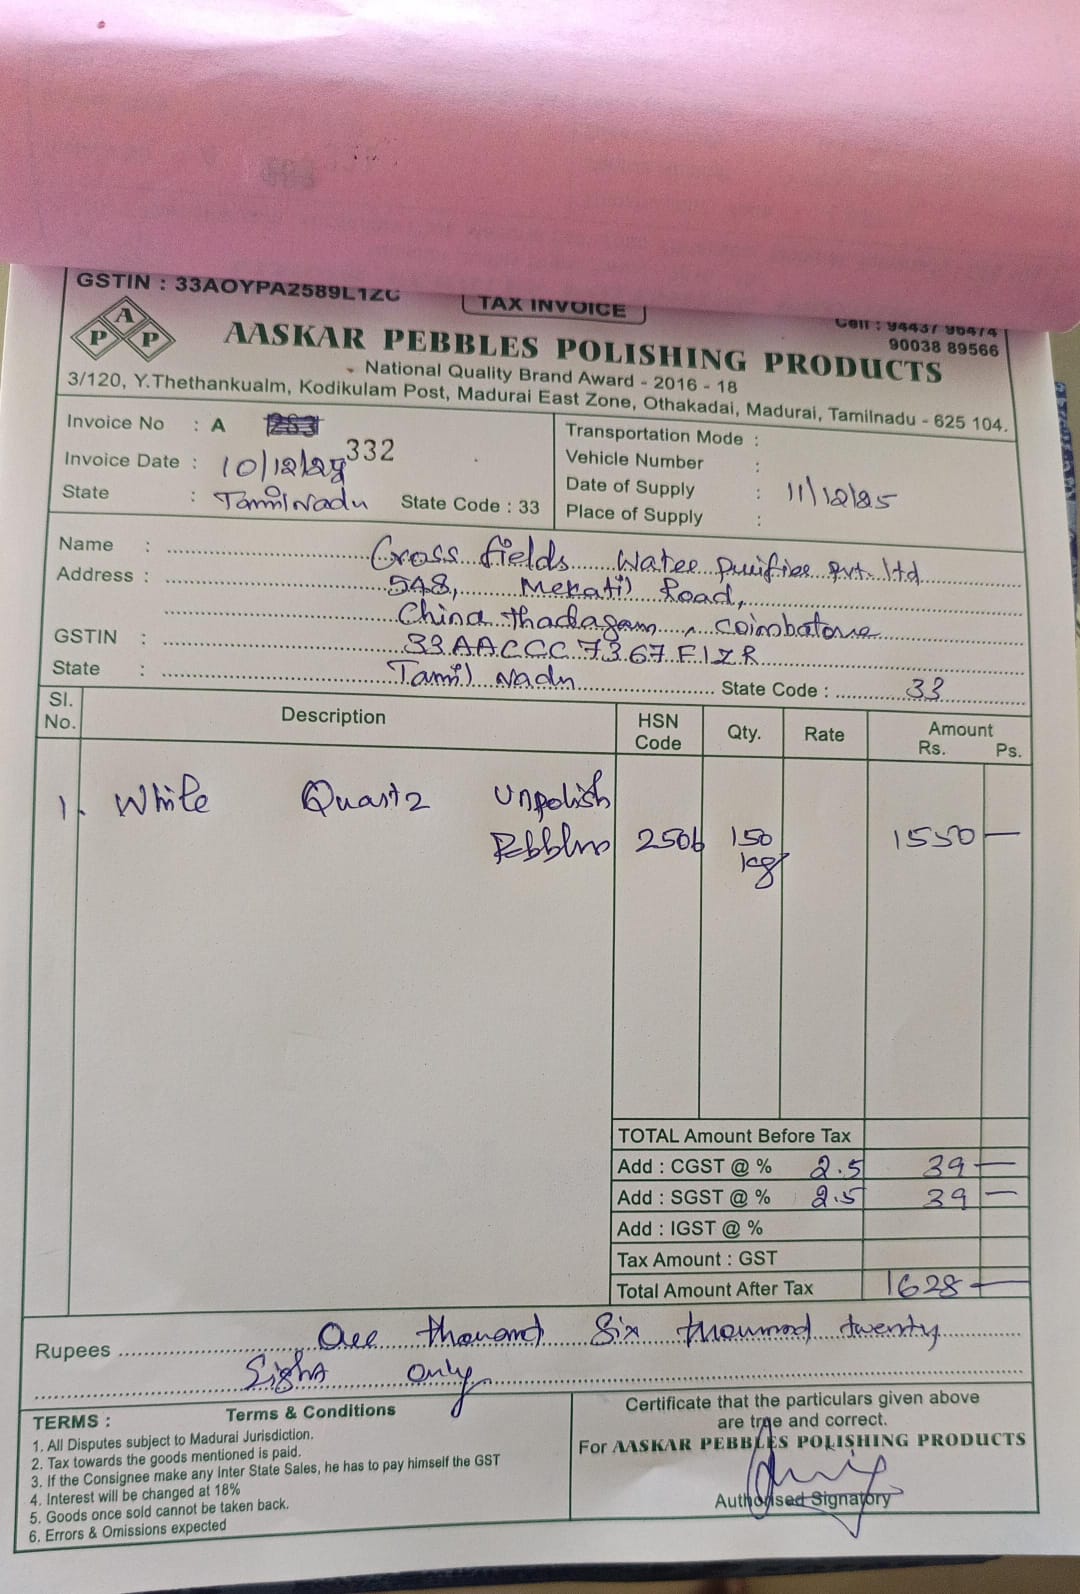 GSTIN : 33AOYPA2589L1ZC
TAX INVOICE
Cell : 94437 96474
90038 89566
A P P
AASKAR PEBBLES POLISHING PRODUCTS
National Quality Brand Award - 2016 - 18
3/120, Y.Thethankualm, Kodikulam Post, Madurai East Zone, Othakadai, Madurai, Tamilnadu - 625 104.
Invoice No : A 332
Invoice Date : 10/12/25
State : TamilNadu State Code : 33
Transportation Mode :
Vehicle Number :
Date of Supply : 11/12/25
Place of Supply :
Name : Cross fields Water purifier pvt. ltd
Address : 548, Mekatil Road,
China thadagam, coimbatore
GSTIN : 33AACCC7367F1ZR
State : Tamil nadu State Code : 33
Sl. No. Description HSN Code Qty. Rate Amount Rs. Ps.
1. White Quartz Unpolish
Pebbles 2506 150 kg 1550 —
TOTAL Amount Before Tax
Add : CGST @ % 2.5 39 —
Add : SGST @ % 2.5 39 —
Add : IGST @ %
Tax Amount : GST
Total Amount After Tax 1628 —
Rupees One thousand Six thousand twenty
Eight only
TERMS : Terms & Conditions
1. All Disputes subject to Madurai Jurisdiction.
2. Tax towards the goods mentioned is paid.
3. If the Consignee make any Inter State Sales, he has to pay himself the GST
4. Interest will be changed at 18%
5. Goods once sold cannot be taken back.
6. Errors & Omissions expected
Certificate that the particulars given above
are true and correct.
For AASKAR PEBBLES POLISHING PRODUCTS
Authorised Signatory